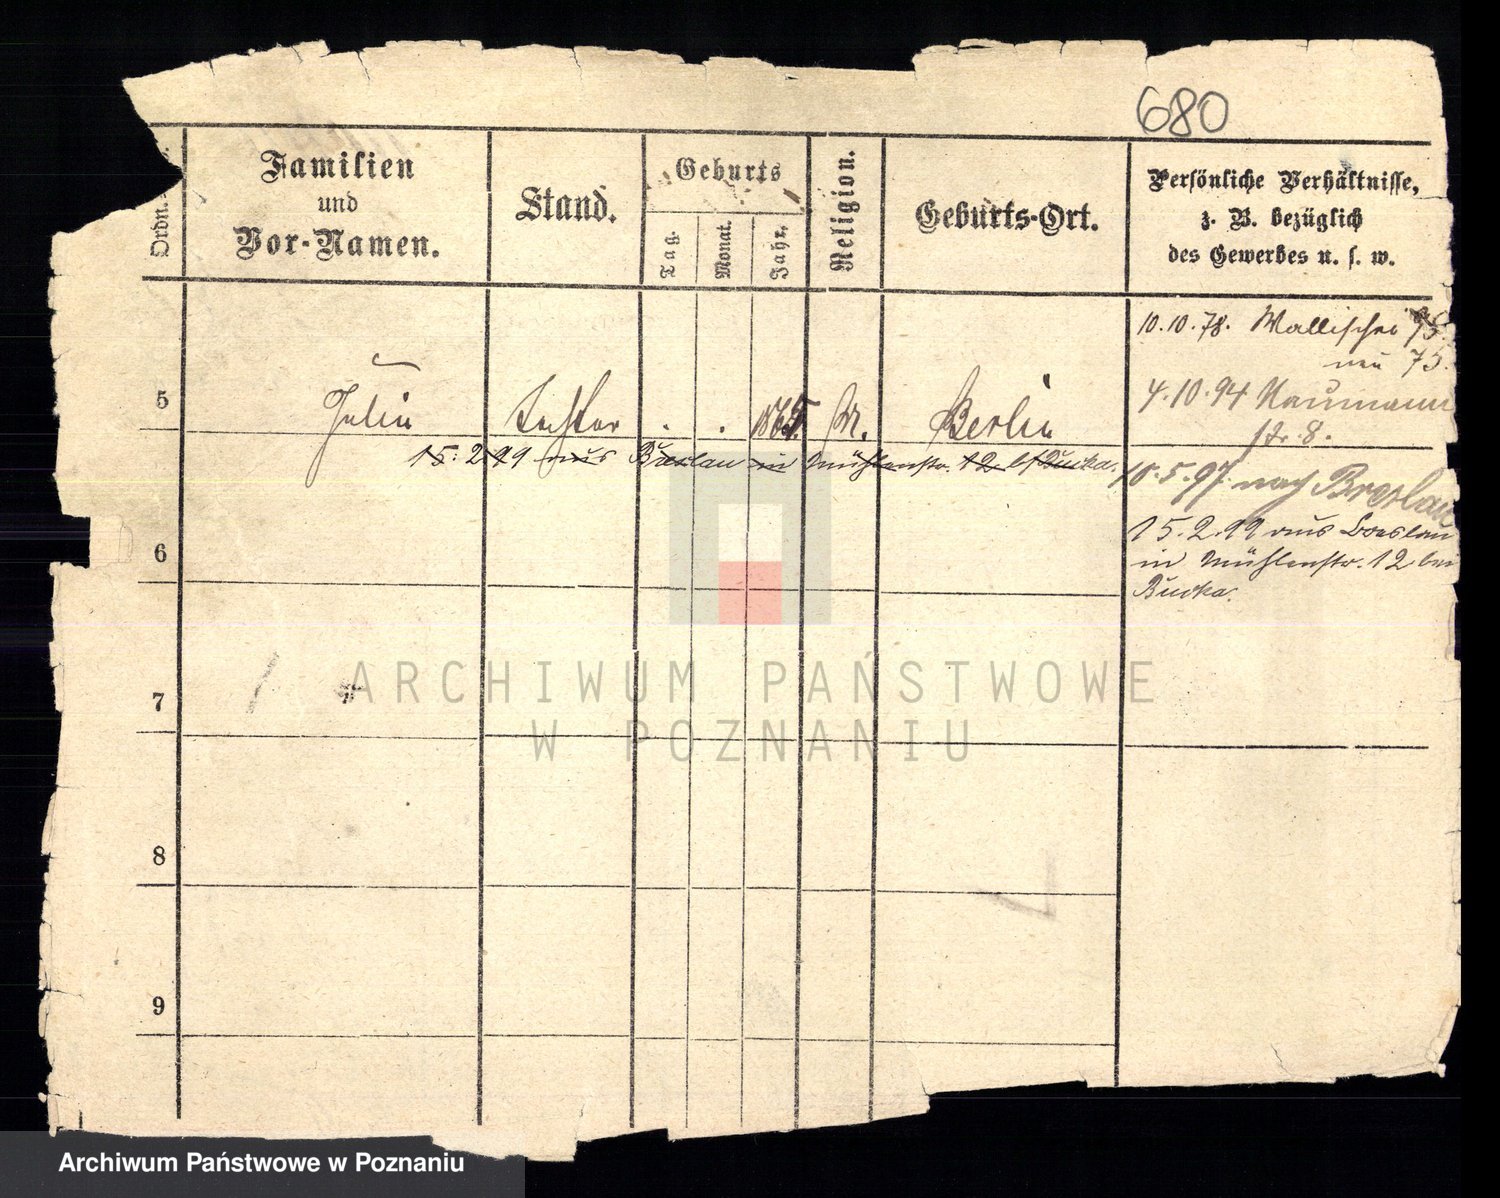 680
Ordn.
Familien
und
Vor-Namen.
Stand.
Geburts
Tag.
Monat.
Jahr.
Religion.
Geburts-Ort.
Persönliche Verhältnisse,
z. B. bezüglich
des Gewerbes u. s. w.
10.10.78. Wallischei 75.
neu 75.
4.10.94 Naumann
str. 8.
5 . . M. Berlin
15.2.99 aus Breslau in Mühlenstr. 12 b/
10.5.97. nach Breslau
15.2.99 aus Breslau
in Mühlenstr. 12 bei
6
7
8
9
ARCHIWUM PAŃSTWOWE
W POZNANIU
Archiwum Państwowe w Poznaniu